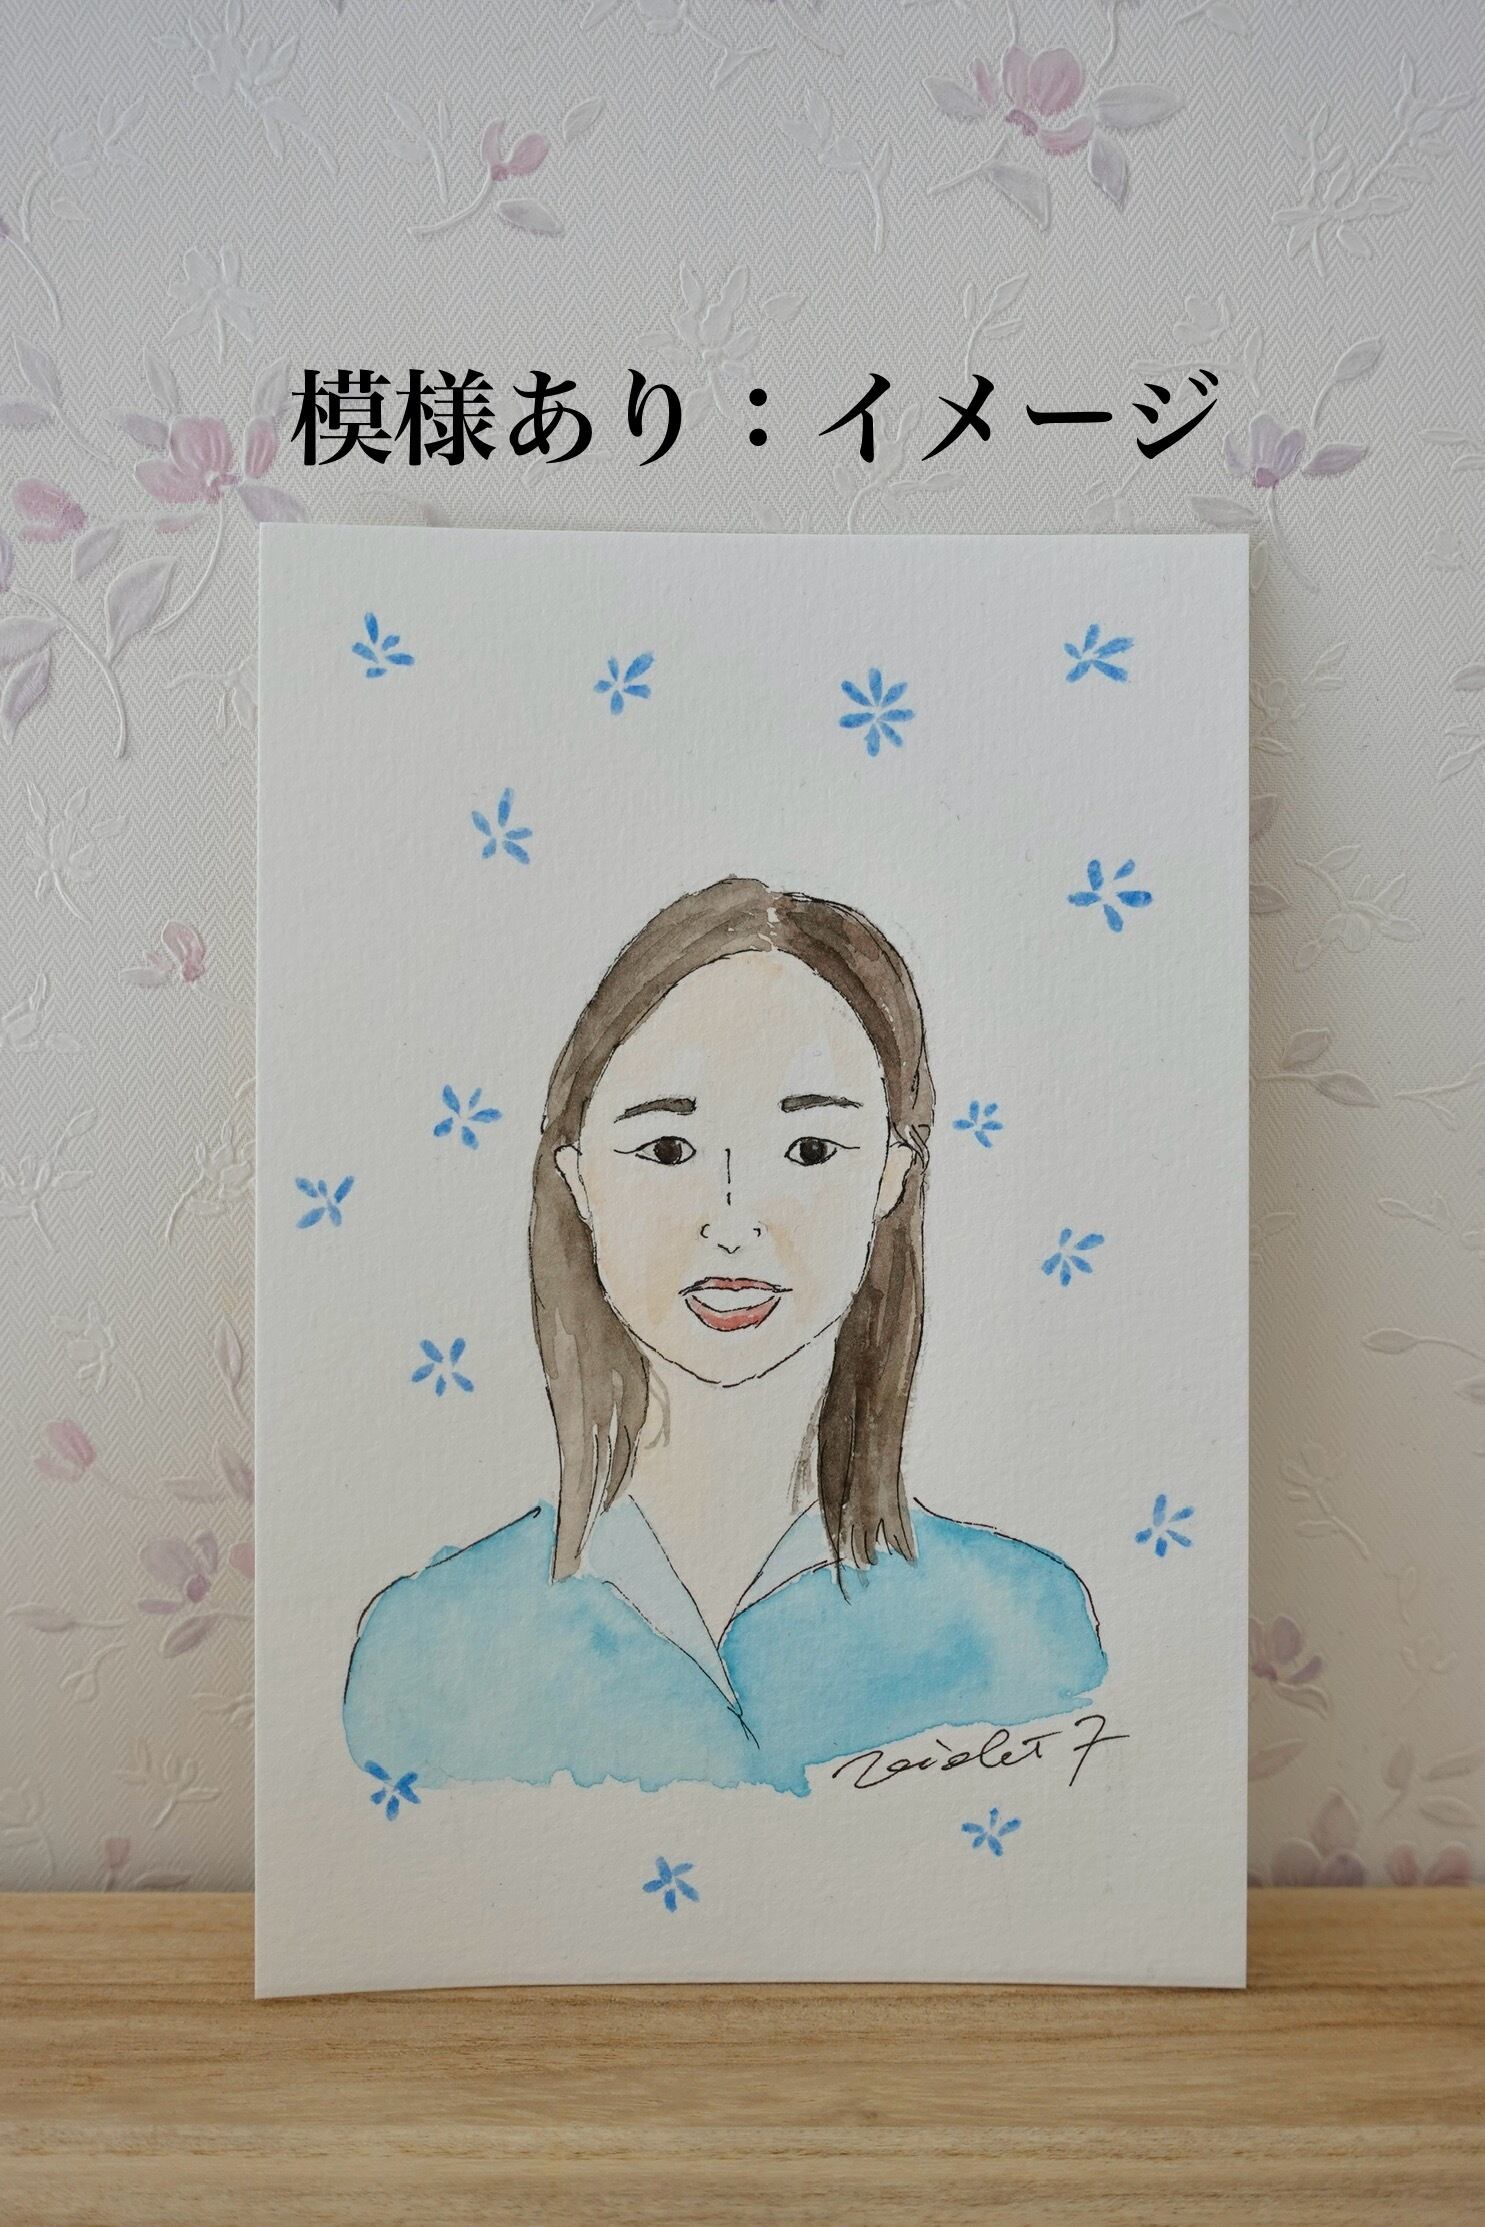 模様あり：イメージ
violet 7